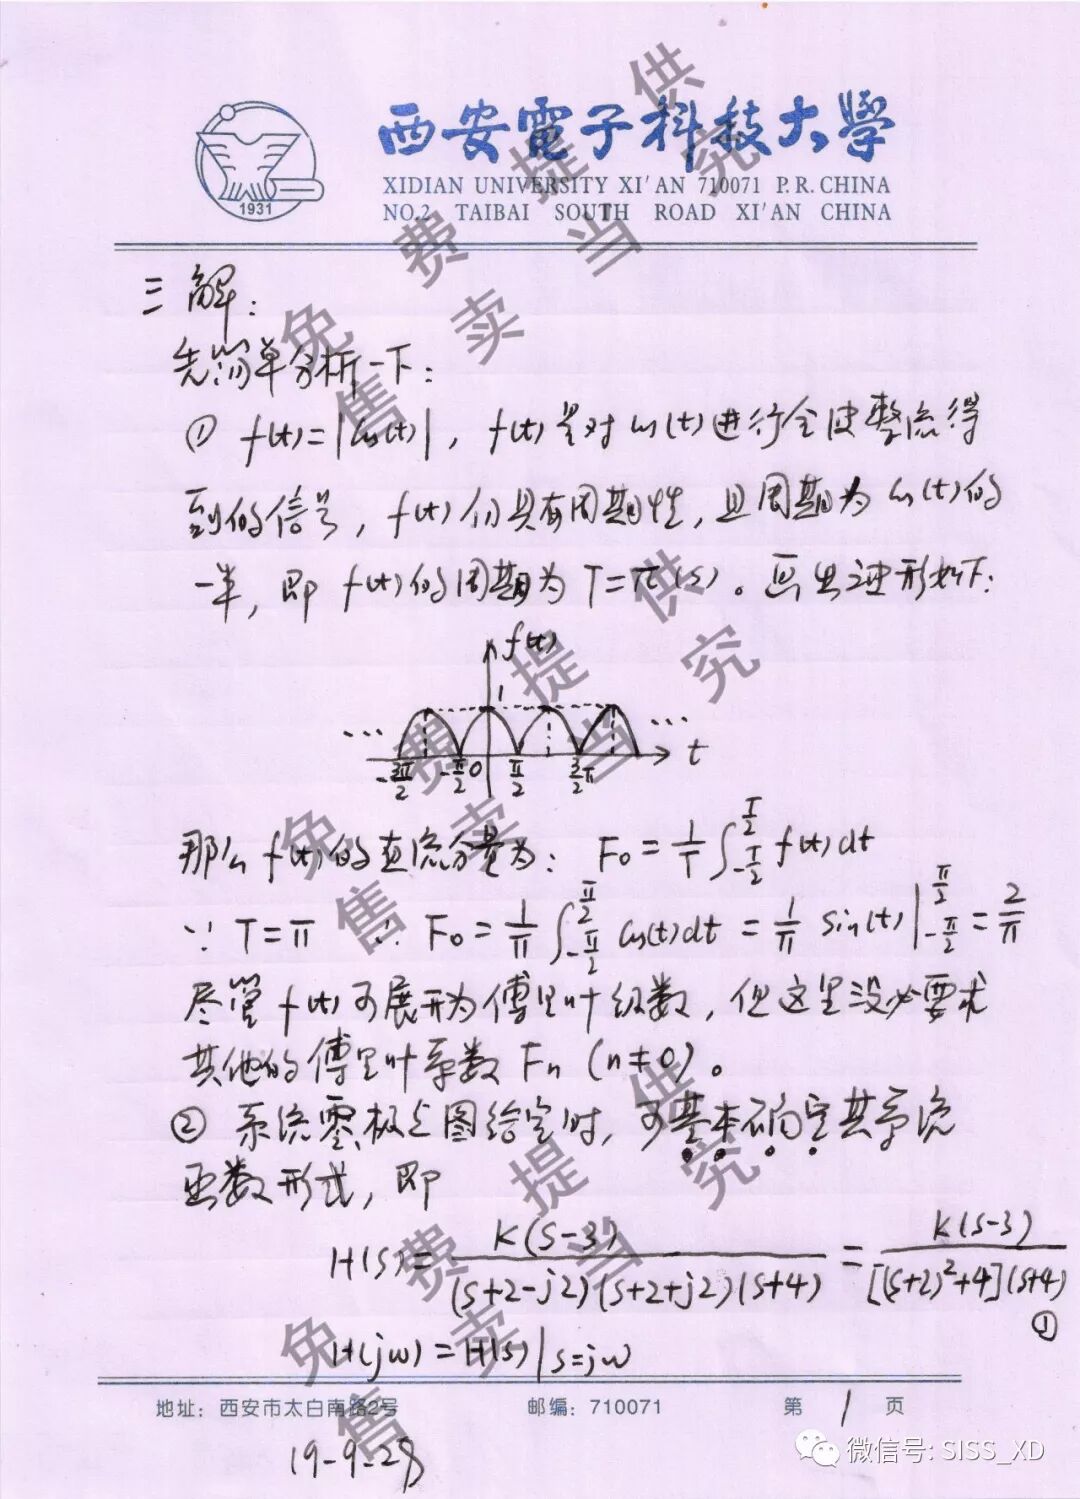 西安電子科技大學
XIDIAN UNIVERSITY XI'AN 710071 P.R. CHINA
NO.2 TAIBAI SOUTH ROAD XI'AN CHINA
1931
三 解:
先简单分析一下:
① f(t)=|cos(t)|, f(t)是对cos(t)进行全波整流得
到的信号, f(t)仍具有周期性, 且周期为cos(t)的
一半, 即 f(t)的周期为 T=π(s)。画出波形如下:
f(t)
1
... ...
-3π/2 -π/2 0 π/2 3/2π t
那么 f(t)的直流分量为: F₀ = 1/T ∫_{-T/2}^{T/2} f(t)dt
∵ T=π ∴ F₀ = 1/π ∫_{-π/2}^{π/2} cos(t)dt = 1/π sin(t)|_{-π/2}^{π/2} = 2/π
尽管 f(t)可展开为傅里叶级数, 但这里没必要求
其他的傅里叶系数 Fn (n≠0)。
② 系统零极点图给定时, 可基本确定其系统
函数形式, 即
H(s) = K(s-3)/((s+2-j2)(s+2+j2)(s+4)) = K(s-3)/([(s+2)²+4](s+4)) ①
H(jω) = H(s)|s=jω
地址: 西安市太白南路2号 邮编: 710071 第 1 页
19-9-28
微信号: SISS_XD
免费提供
售卖当究
免费提供
售卖当究
免费提供
售卖当究